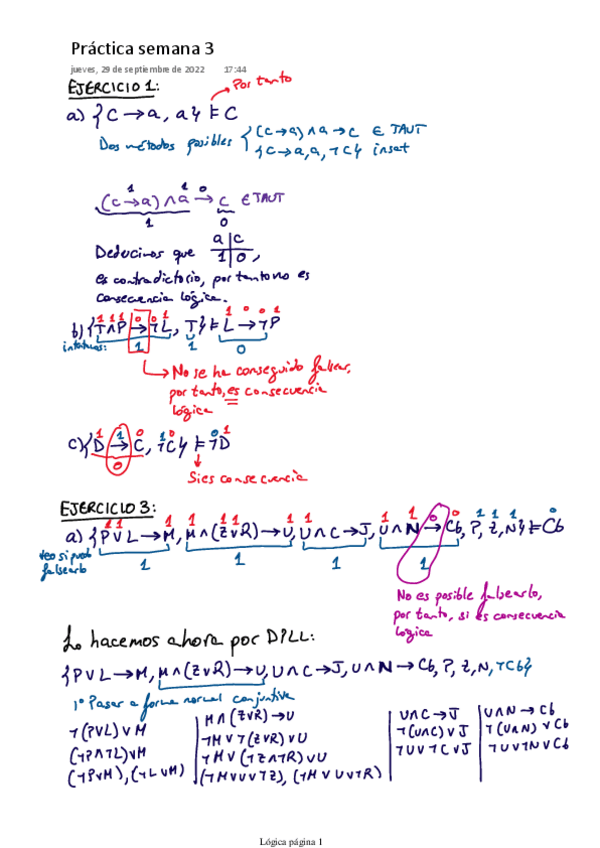 Práctica semana 3
jueves, 29 de septiembre de 2022 17:44
EJERCICIO 1:
Por tanto
a) {C → a, a} ⊨ C
Dos métodos posibles { (c→a) ∧ a → c ∈ TAUT
{c→a, a, ¬c} insat
1 1 0
(c→a) ∧ a → c ∈ TAUT
1 0
a | c
Deducimos que 1 | 0 ,
es contradictorio, por tanto no es
consecuencia lógica.
1 1 1 0 0 1 1 0 0 1
b) {T∧P → ¬L, T} ⊨ L → ¬P
intentamos: 1 1 0
No se ha conseguido falsear,
por tanto, es consecuencia
lógica
1 1 0 1 0 0 1
c) {D → C, ¬C} ⊨ ¬D
0
Si es consecuencia
EJERCICIO 3:
1 1 1 1 1 1 1 1 1 0 0 1 1 1 0
a) {P∨L → M, M∧(Z∨R) → U, U∧C → J, U∧N → Cb, P, Z, N} ⊨ Cb
veo si puedo
falsearlo
1 1 1 1
No es posible falsearlo,
por tanto, si es consecuencia
logica
Lo hacemos ahora por DPLL:
{P∨L → M, M∧(Z∨R) → U, U∧C → J, U∧N → Cb, P, Z, N, ¬Cb}
1º Pasar a forma normal conjuntiva
¬(P∨L)∨M
(¬P∧¬L)∨M
(¬P∨M), (¬L∨M)
M∧(Z∨R) → U
¬M∨¬(Z∨R)∨U
¬M∨(¬Z∧¬R)∨U
(¬M∨U∨¬Z), (¬M∨U∨¬R)
U∧C → J
¬(U∧C)∨J
¬U∨¬C∨J
U∧N → Cb
¬(U∧N)∨Cb
¬U∨¬N∨Cb
Lógica página 1